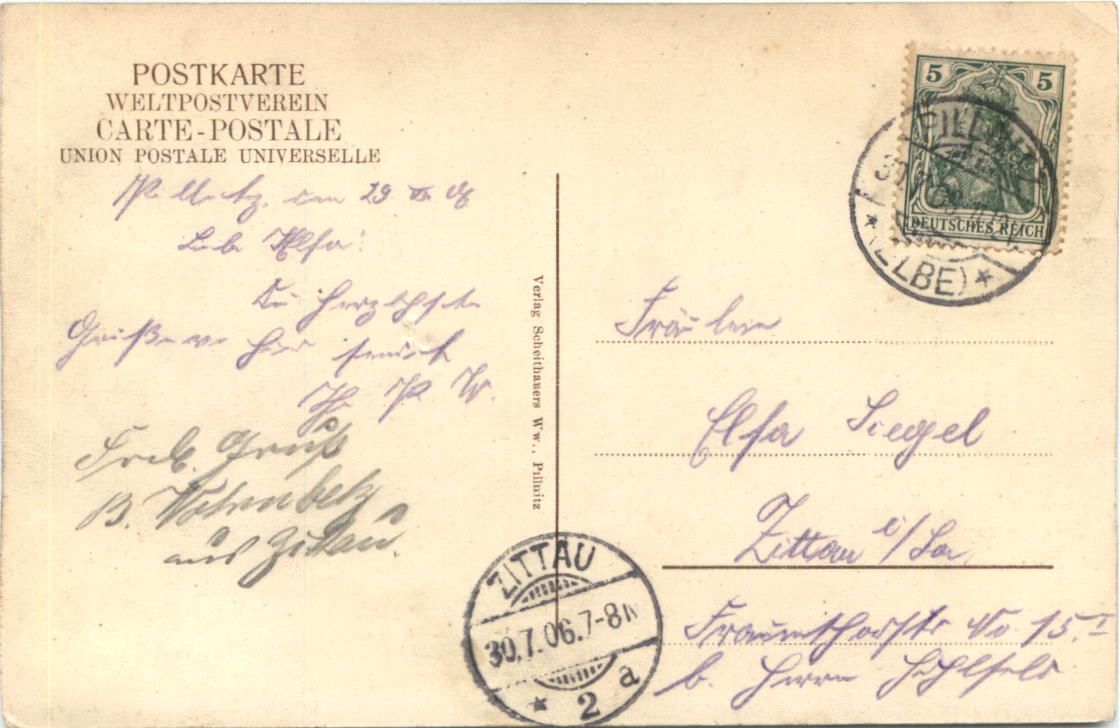 POSTKARTE
WELTPOSTVEREIN
CARTE-POSTALE
UNION POSTALE UNIVERSELLE
Pillnitz, den 29
Liebe Elsa!
Die herzlichsten
Grüße von hier sendet
Frdl. Gruß
B.
aus Zittau.
Verlag Scheithauers Ww., Pillnitz
5 5
DEUTSCHES REICH
PILLNITZ
(ELBE)
Fräulein
Elsa Siegel
Zittau i/Sa.
No 15. I
b. Herrn Hohlfeld
ZITTAU
30.7.06.7-8N
* 2 a